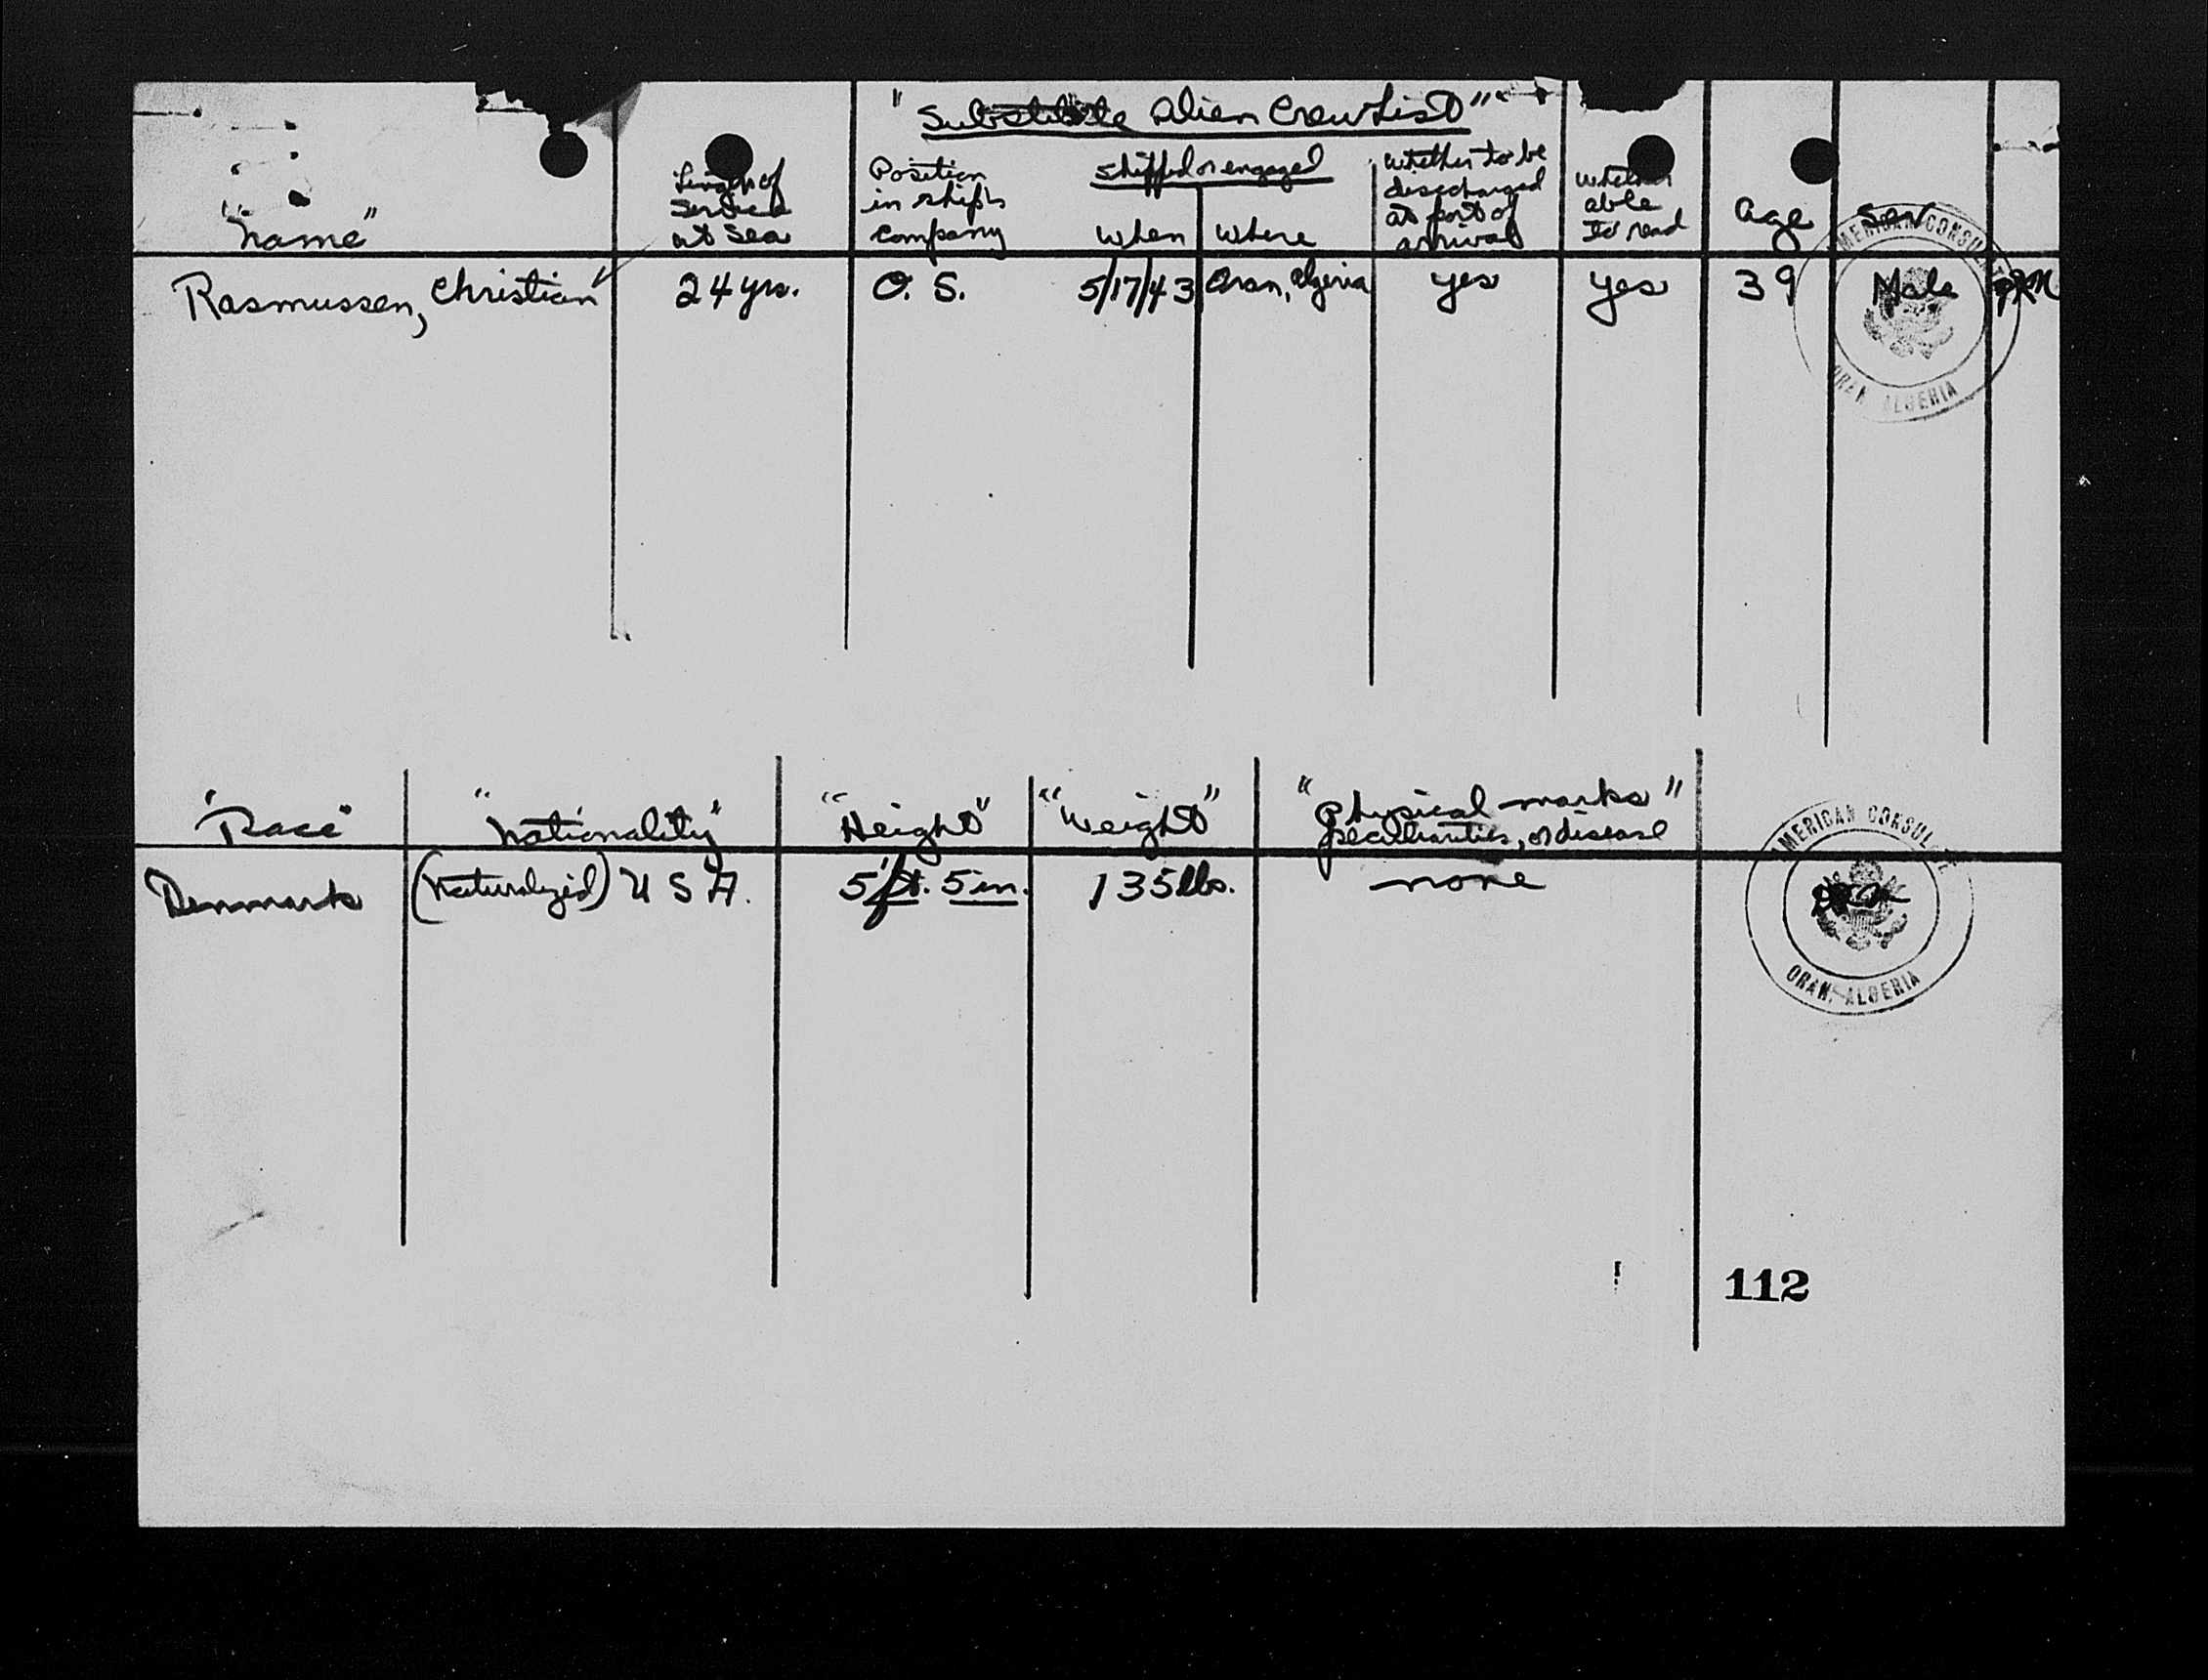 "Substitute Alien Crew List"
"Name"
Length of
Service
at Sea
Position
in ship's
Company
Shipped or engaged
When
Where
Whether to be
discharged
at port of
arrival
Whether
able
to read
Age
Sex
Rasmussen, Christian 24 yrs. O. S. 5/17/43 Oran, Algeria yes yes 39 Male
AMERICAN CONSU
ORAN ALGERIA
"Race"
"Nationality"
"Height"
"Weight"
"Physical marks"
peculiarities, or disease
Denmark (Naturalyzid) U S A. 5 ft. 5 in. 135 lbs. none
AMERICAN CONSUL
ORAN, ALGERIA
112